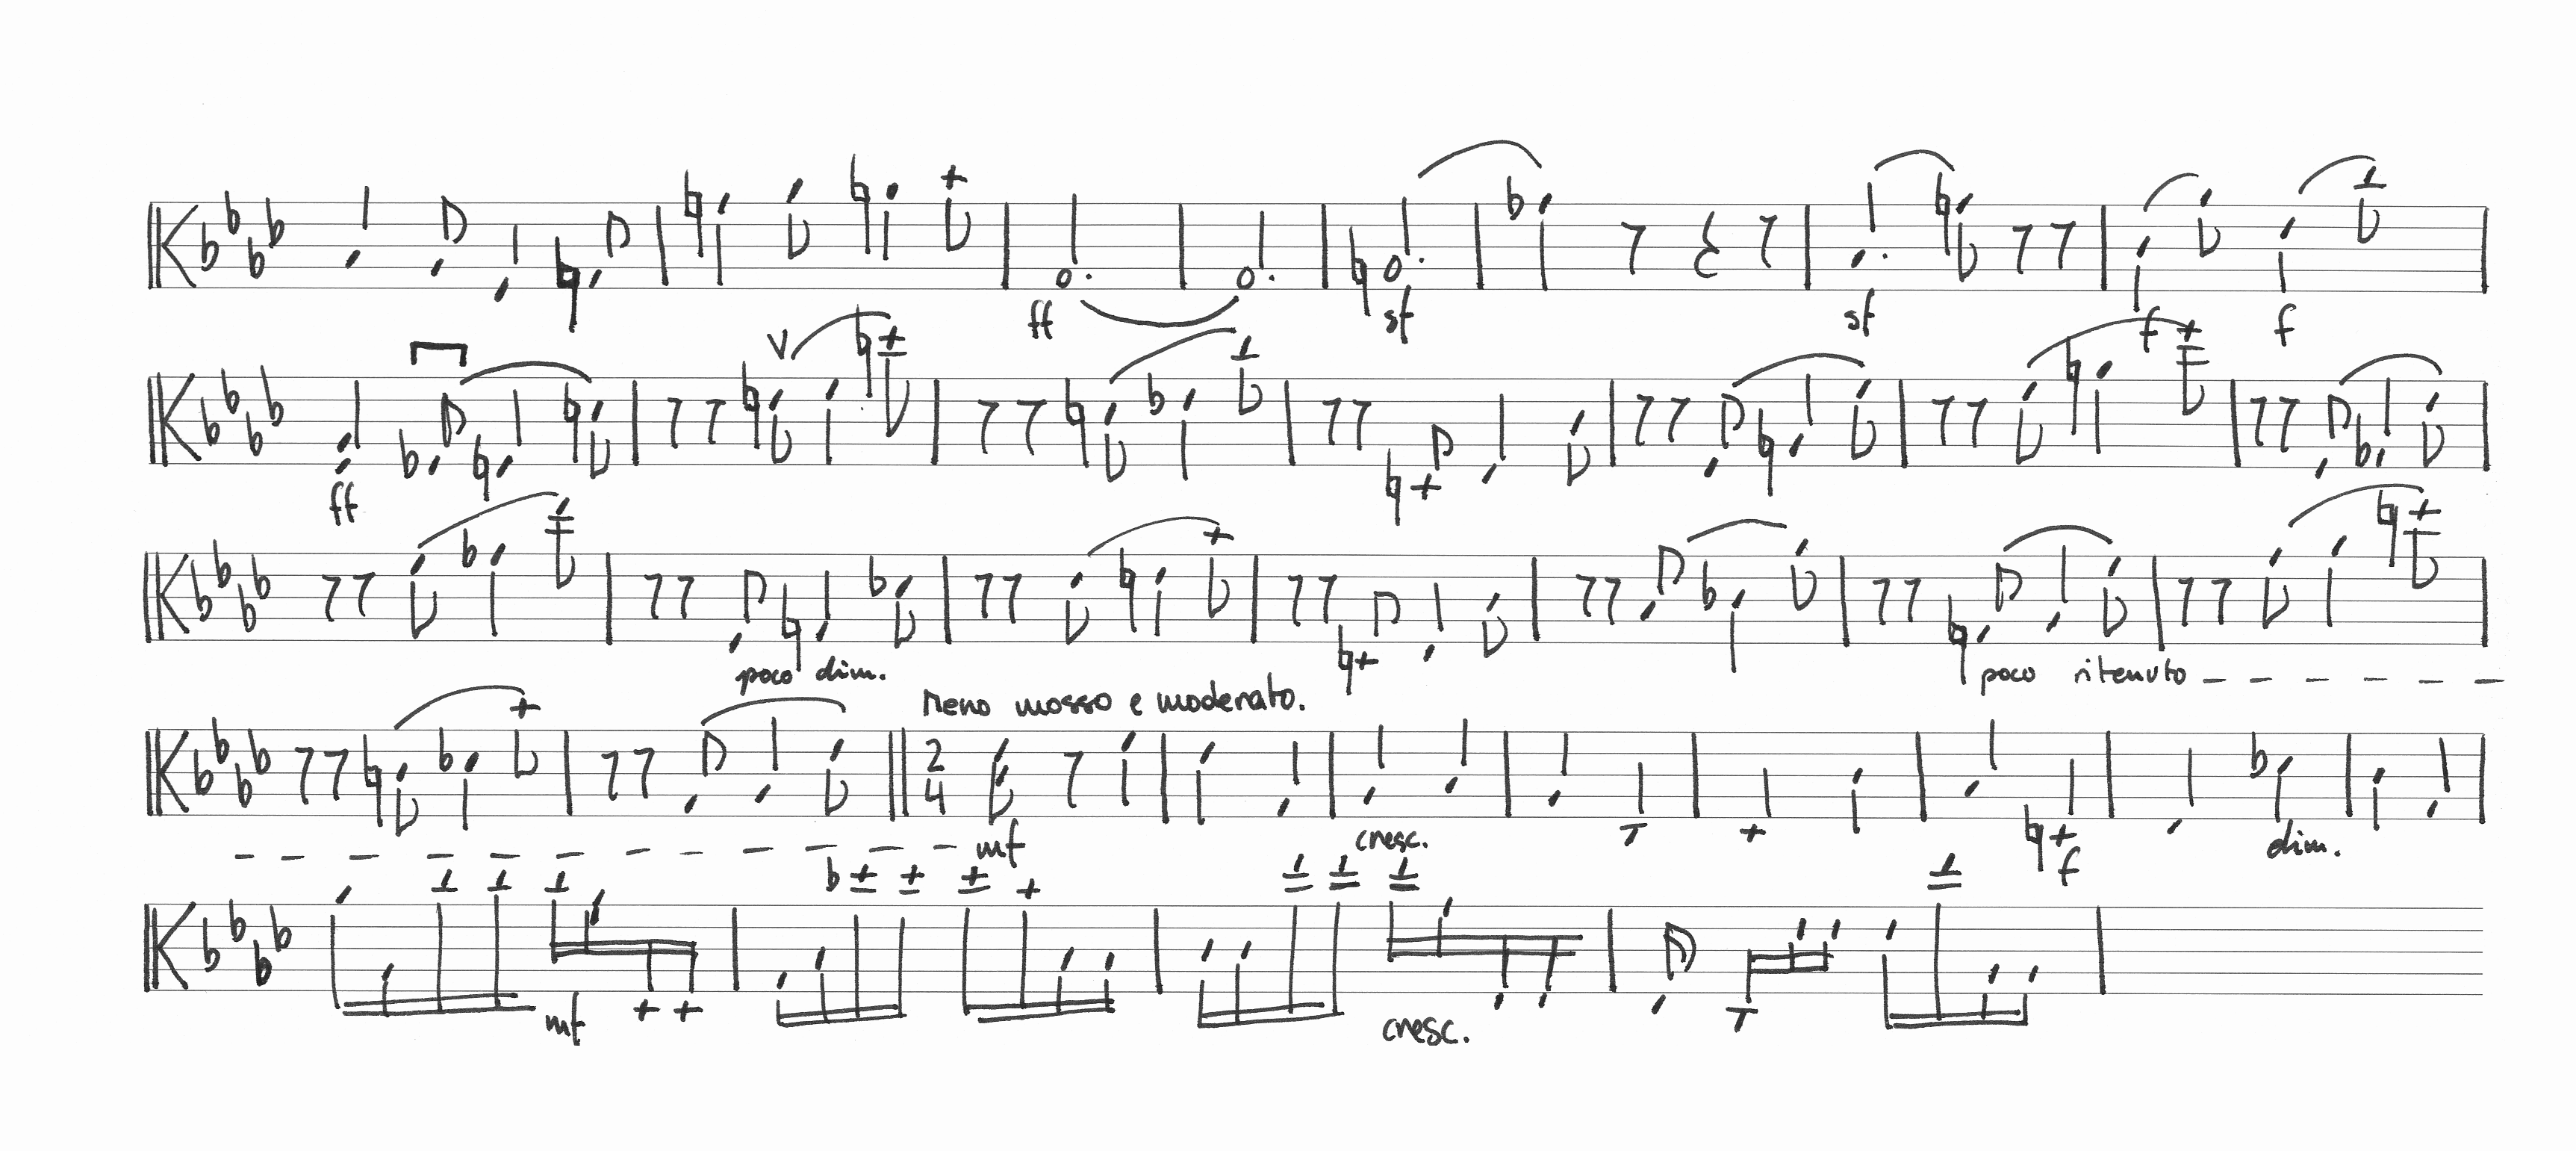 ff sf sf f f
ff
poco dim. poco ritenuto
Meno mosso e moderato.
2
4
mf cresc. f dim.
mf cresc.